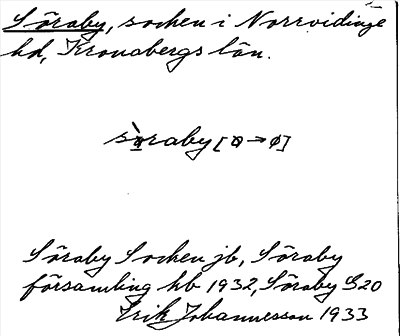 Söraby, socken i Norrvidinge
hd, Kronobergs län.
sø̀raby [ꝋ→ø]
Söraby Socken jb, Söraby
församling hb 1932, Söraby G20
Erik Johannesson 1933